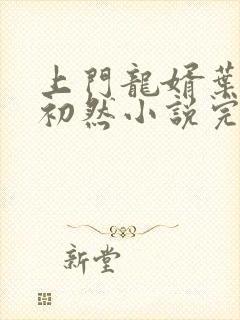 上門龍婿葉
初然小説完
新堂